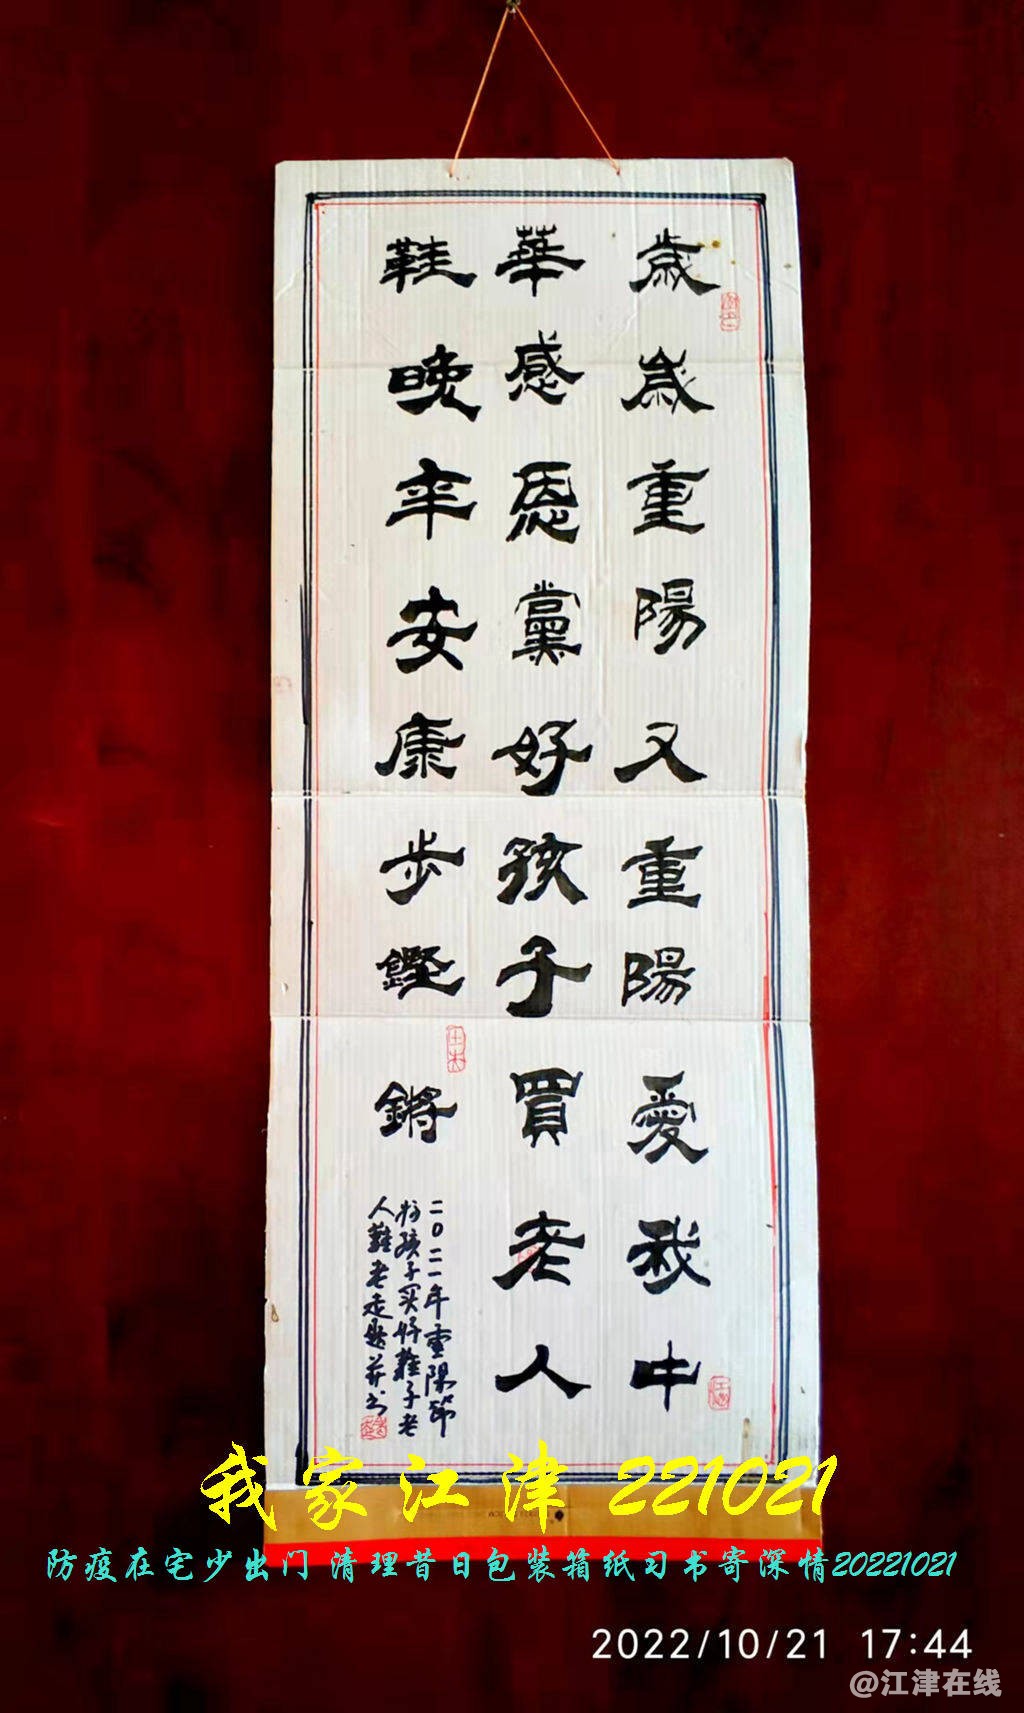 歲歲重陽又重陽愛我中
華感恩黨好孩子買老人
鞋晚年安康步鏗
鏘
二〇二一年重陽節
好孩子买好鞋子老
人鞋老走题并书
我家江津 221021
防疫在宅少出门 清理昔日包装箱纸习书寄深情20221021
2022/10/21 17:44
@江津在线